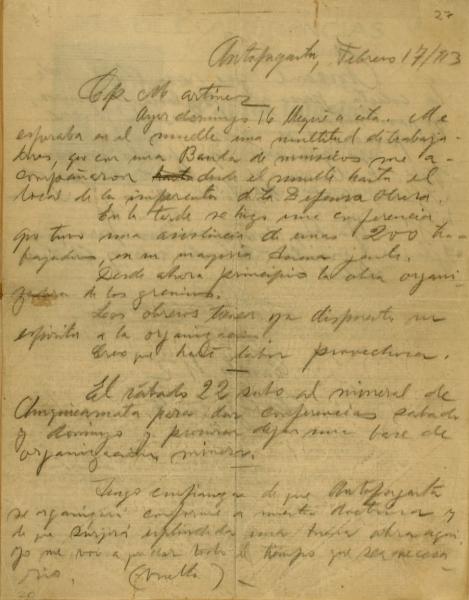 27
Antofagasta, Febrero 17/913
Cp. Martínez
Ayer domingo 16 llegué a esta. Me
esperaba en el muelle una multitud de trabaja-
dores, que con una Banda de músicos me a-
compañaron hasta desde el muelle hasta el
local de la imprenta de la Defensa Obrera.
En la tarde se hizo una conferencia
que tuvo una asistencia de unas 200 tra-
bajadores, en su mayoría buena gente.
Desde ahora principio la obra organi-
zadora de los gremios.
Los obreros tienen ya dispuesto su
espíritu a la organización.
Creo que haré labor provechosa.
El sábado 22 subo al mineral de
Chuquicamata para dar conferencias sábado
y domingo y procurar dejar una base de
organización minera.
Tengo confianza de que Antofagasta
se organizará conforme a nuestra doctrina y
de que surjirá espléndida una obra aquí
yo me voi a quedar todo el tiempo que sea necesa
rio. (Vuelta)